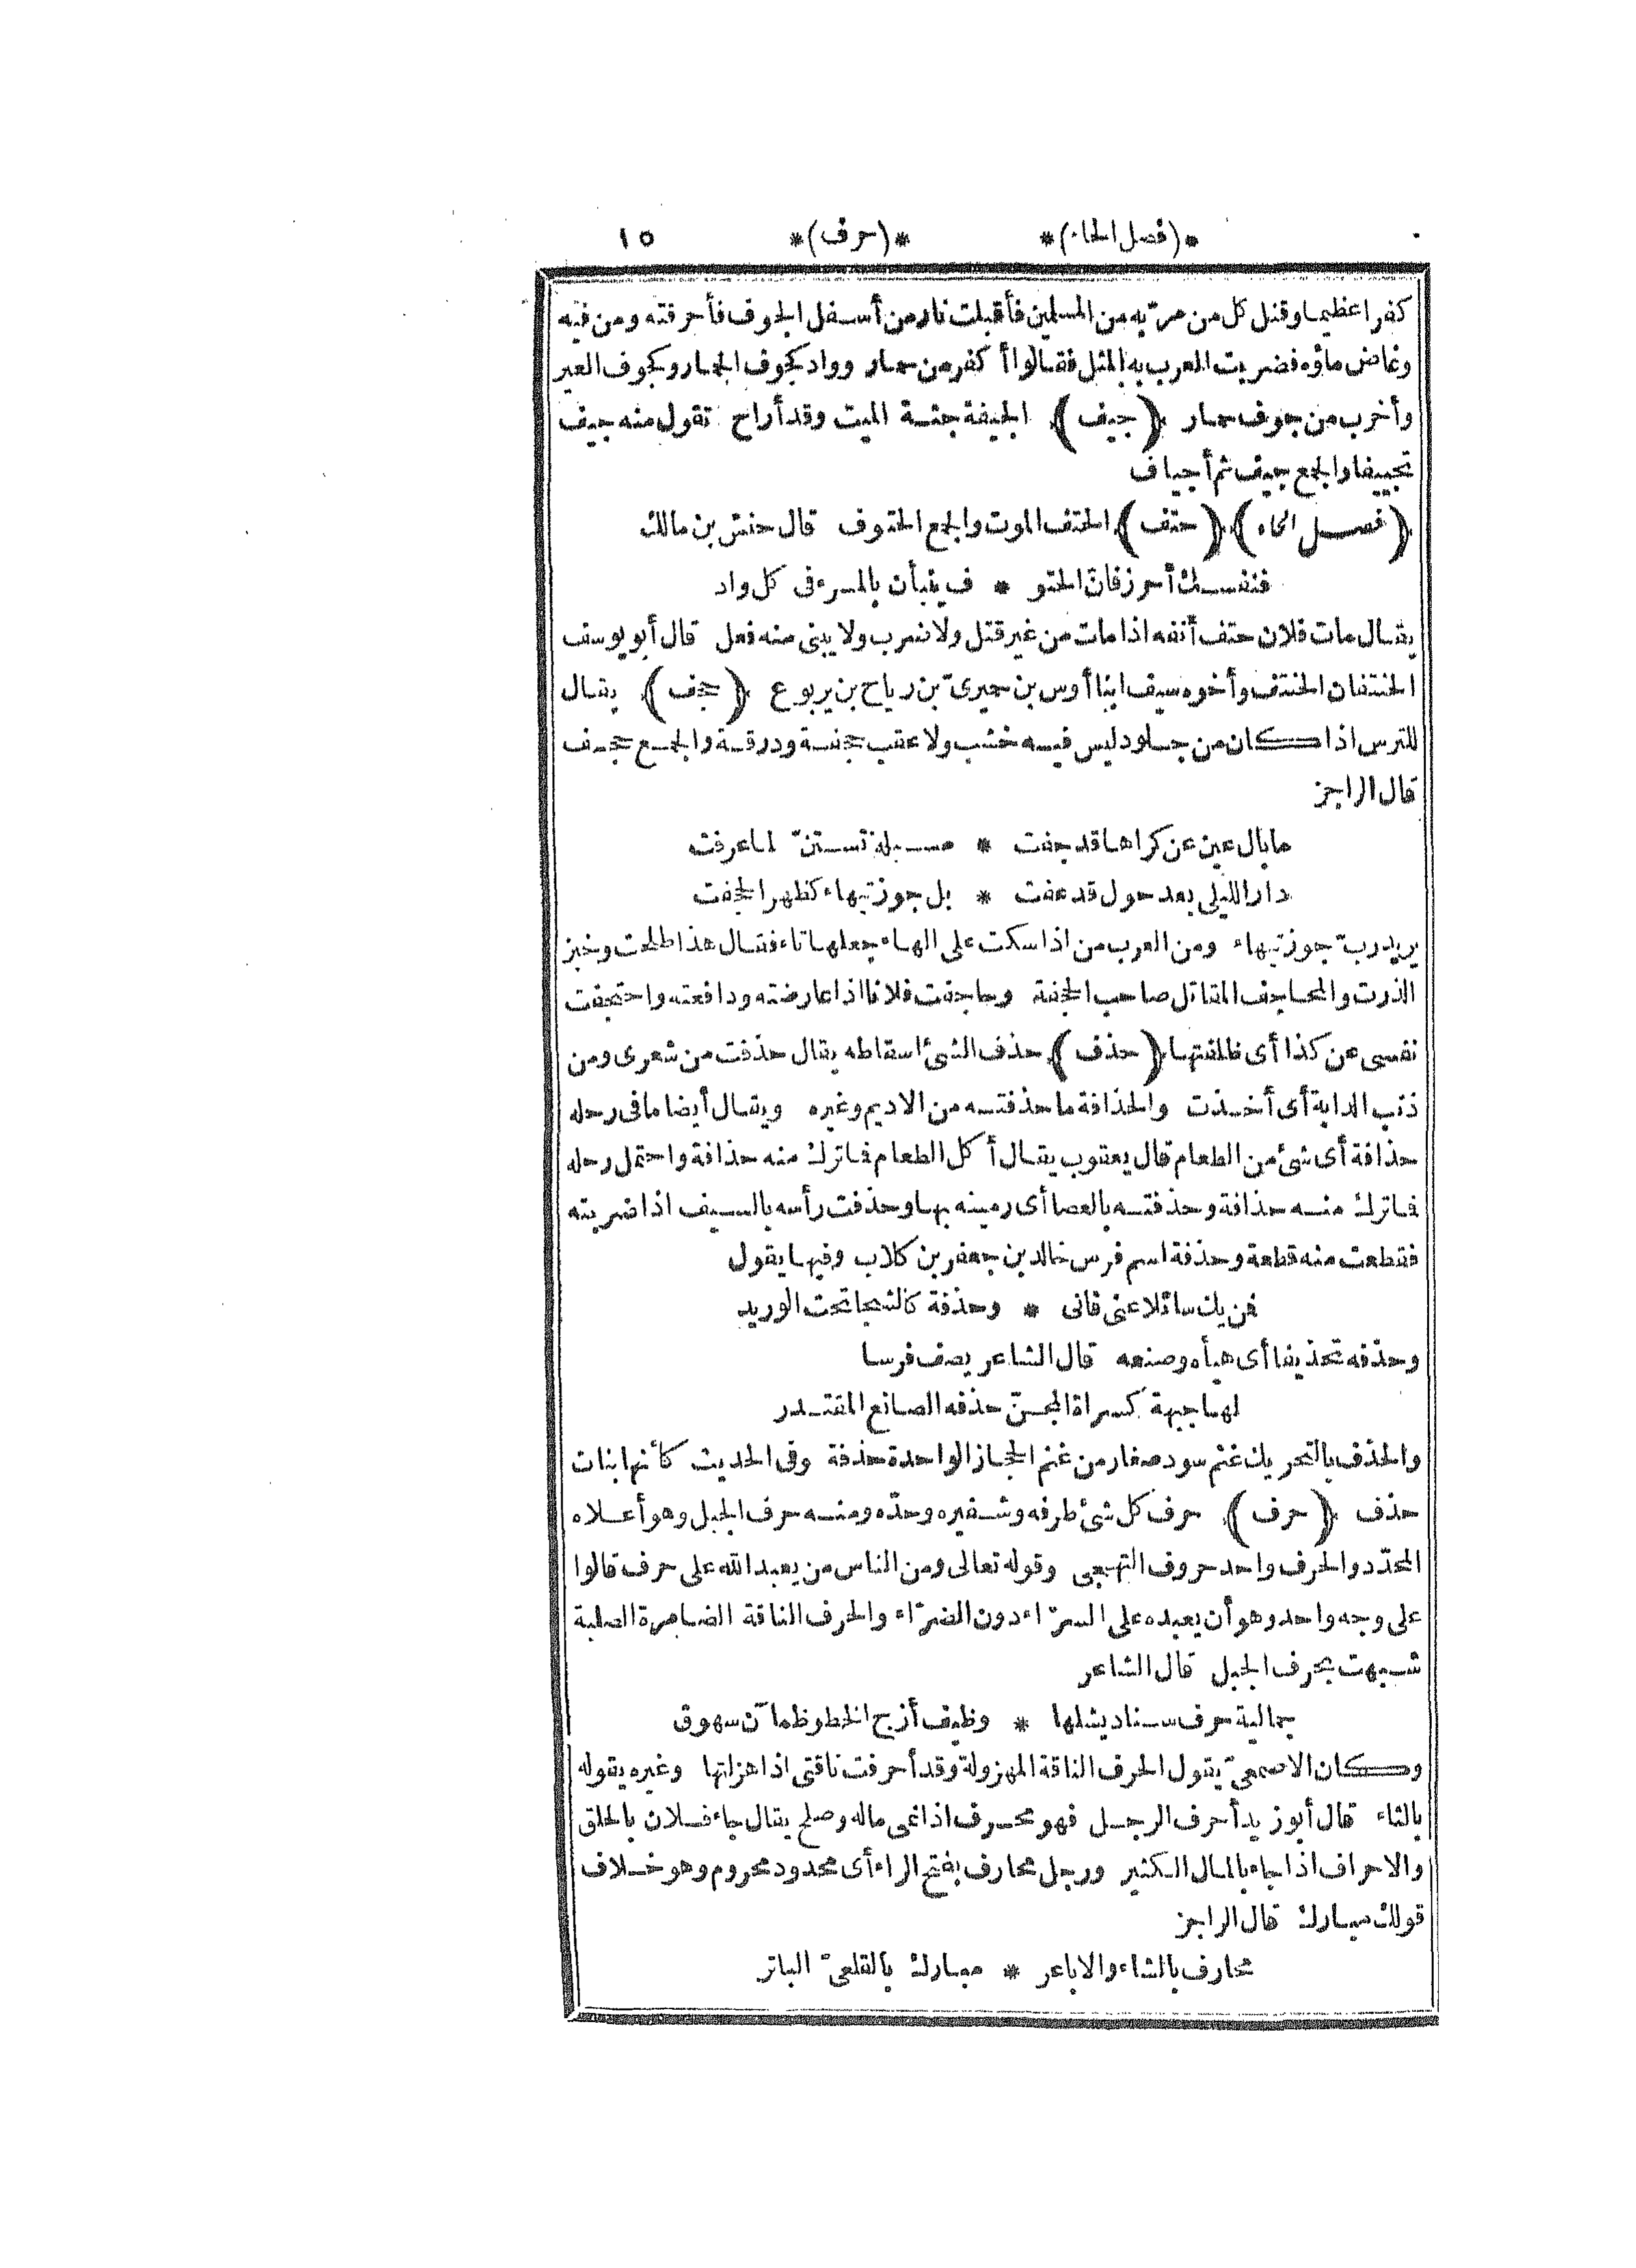 *(فصل الحاء)* *(حرف)* ١٥
كفرا عظيما وقتل كل من مرّ به من المسلمين فأقبلت نار من أسفل الجوف فأحرقته ومن فيه
وغاض ماؤه فضربت العرب به المثل فقالوا أكفر من حمار وواد كجوف الحمار وكجوف العير
وأخرب من جوف حمار (جيف) الجيفة جثة الميت وقد أراح تقول منه جيف
تجييفا والجمع جيف ثم أجياف
(فصل الحاء) (حتف) الحتف الموت والجمع الحتوف قال حنش بن مالك
فنفسك أحرز فان الحتو * ف ينبأن بالمرء فى كل واد
يقال مات فلان حتف أنفه اذا مات من غير قتل ولا ضرب ولا يبنى منه فعل قال أبو يوسف
الحنتفان الحنتف وأخوه سيف ابنا أوس بن حميرىّ بن رياح بن يربوع (حجف) يقال
للترس اذا كان من جلود ليس فيه خشب ولا عقب حجفة ودرقة والجمع حجف
قال الراجز
ما بال عين عن كراها قد جفت * مسبلة تستنّ لما عرفت
دارا لليلى بعد حول قد عفت * بل جوز تيهاء كظهر الحجفت
يريد ربّ جوز تيهاء ومن العرب من اذا سكت على الهاء جعلها تاء فقال هذا طلحت وخبز
الذرت والمحاجف المقاتل صاحب الحجفة وحاجفت فلانا اذا عارضته ودافعته واحتجفت
نفسى عن كذا أى ظلفتها (حذف) حذف الشئ اسقاطه يقال حذفت من شعرى ومن
ذنب الدابة أى أخذت والحذافة ما حذفته من الاديم وغيره ويقال أيضا ما فى رحله
حذافة أى شئ من الطعام قال يعقوب يقال أكل الطعام فما ترك منه حذافة واحتمل رحله
فما ترك منه حذافة وحذفته بالعصا أى رميته بها وحذفت رأسه بالسيف اذا ضربته
فقطعت منه قطعة وحذفة اسم فرس خالد بن جعفر بن كلاب وفيها يقول
فمن يك سائلا عنى فانى * وحذفة كالشجا تحت الوريد
وحذفه تحذيفا أى هيأه وصنعه قال الشاعر يصف فرسا
لها جبهة كسراة المجنّ حذفه الصانع المقتدر
والحذف بالتحريك غنم سود صغار من غنم الحجاز الواحدة حذفة وفى الحديث كأنها بنات
حذف (حرف) حرف كل شئ طرفه وشفيره وحدّه ومنه حرف الجبل وهو أعلاه
المحدّد والحرف واحد حروف التهجى وقوله تعالى ومن الناس من يعبد الله على حرف قالوا
على وجه واحد وهو أن يعبده على السرّاء دون الضرّاء والحرف الناقة الضامرة الصلبة
شبهت بحرف الجبل قال الشاعر
جمالية حرف سناد يشلها * وظيف أزج الخطو ظمآن سهوق
وكان الاصمعىّ يقول الحرف الناقة المهزولة وقد أحرفت ناقتى اذا هزلتها وغيره يقوله
بالثاء قال أبو زيد أحرف الرجل فهو محرف اذا نمى ماله وصلح يقال جاء فلان بالحلق
والاحراف اذا جاء بالمال الكثير ورجل محارف بفتح الراء أى محدود محروم وهو خلاف
قولك مبارك قال الراجز
محارف بالشاء والاباعر * مبارك بالقلعىّ الباتر